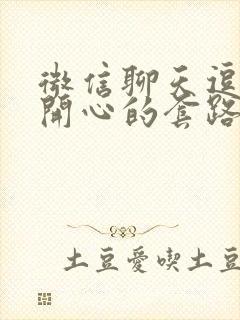 微信聊天逗
開心的套路
土豆愛喫土豆